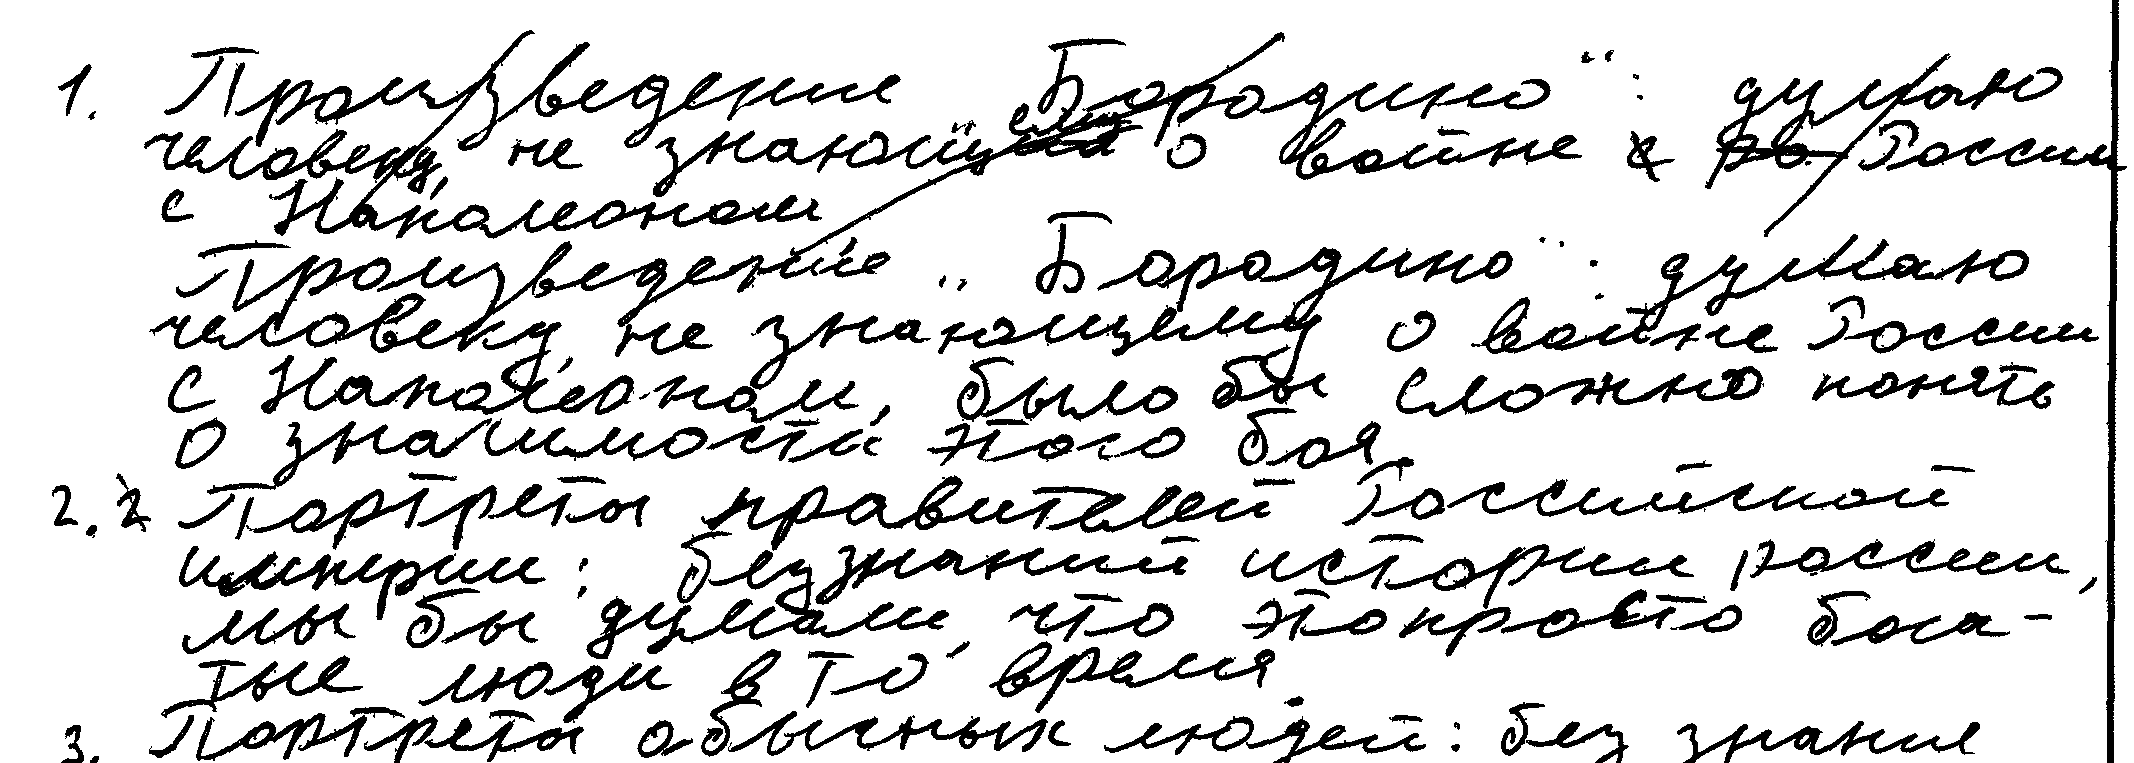 1. Произведение „Бородино“: думаю
человеку, не знающему о войне России
с Наполеоном
Произведение „Бородино“: думаю
человеку, не знающему о войне России
с Наполеоном, было бы сложно понять
о значимости этого боя.
2. Портреты правителей Российской
империи: без знаний истории россии,
мы бы думали, что это просто бога-
тые люди в то время.
3. Портреты обычных людей: без знание